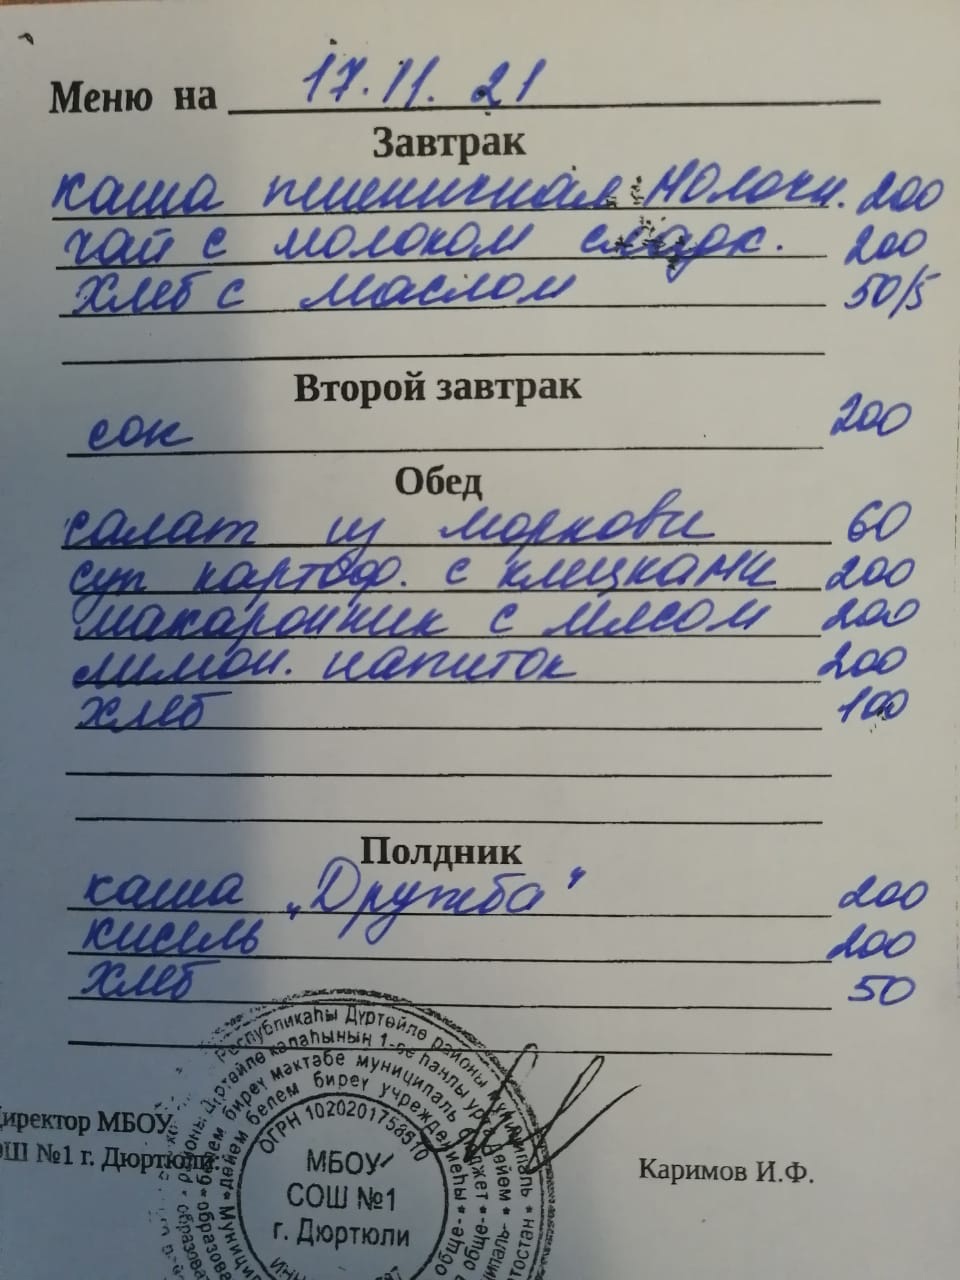 Меню на 17.11.21
Завтрак
каша пшеничная молочн. 200
чай с молоком сладк. 200
хлеб с маслом 50/5
Второй завтрак
сок 200
Обед
салат из моркови 60
суп картоф. с клецками 200
макаронник с мясом 200
лимон. напиток 200
хлеб 100
Полдник
каша „Дружба" 200
кисель 200
хлеб 50
Республикаһы Дүртөйлө районы муниципаль
Дүртөйлө ҡалаһының 1-се һанлы урта дөйөм
белем биреү мәктәбе муниципаль бюджет
дөйөм белем биреү учреждениеһы
ОГРН 1020201758510
МБОУ
СОШ №1
г. Дюртюли
Директор МБОУ
ОШ №1 г. Дюртюли.
Каримов И.Ф.